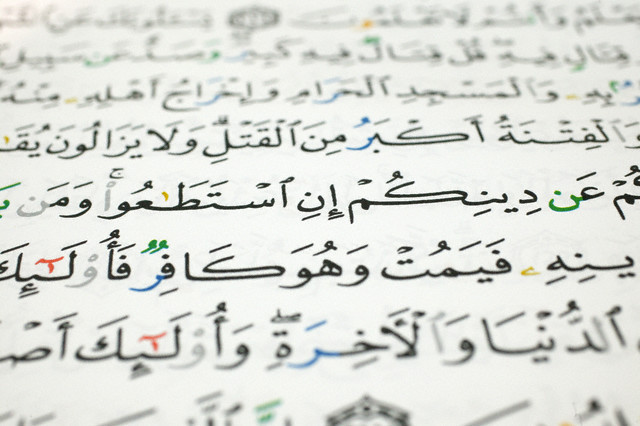 وَأَنتُمۡ لَا تَعۡلَمُونَ يَسۡـَٔلُونَكَ عَنِ
قِتَالٖ فِيهِۖ قُلۡ قِتَالٞ فِيهِ كَبِيرٞۚ وَصَدٌّ عَن سَبِيلِ
بِهِۦ وَٱلۡمَسۡجِدِ ٱلۡحَرَامِ وَإِخۡرَاجُ أَهۡلِهِۦ مِنۡهُ
وَٱلۡفِتۡنَةُ أَكۡبَرُ مِنَ ٱلۡقَتۡلِۗ وَلَا يَزَالُونَ
عَن دِينِكُمۡ إِنِ ٱسۡتَطَٰعُواْۚ وَمَن
فَيَمُتۡ وَهُوَ كَافِرٞ فَأُوْلَٰٓئِكَ
ٱلدُّنۡيَا وَٱلۡأٓخِرَةِۖ وَأُوْلَٰٓئِكَ